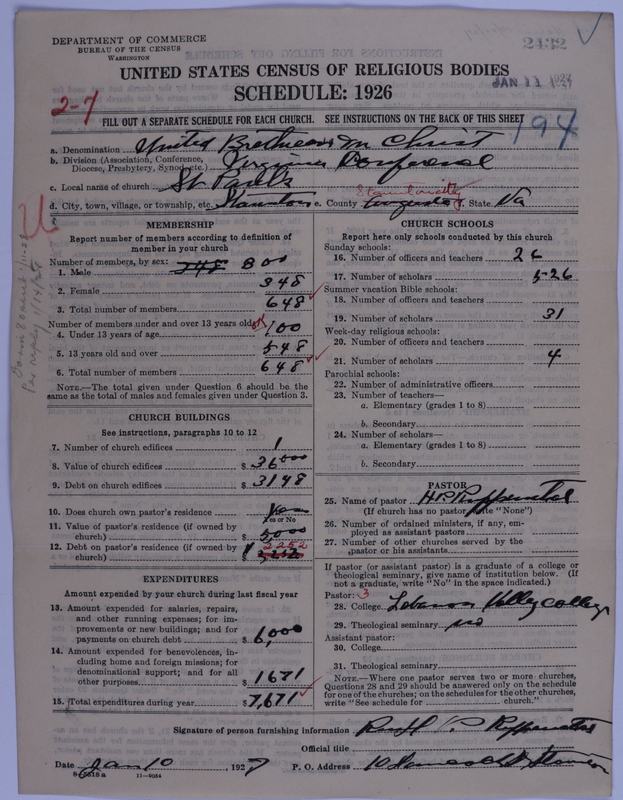 DEPARTMENT OF COMMERCE
BUREAU OF THE CENSUS
WASHINGTON
2432
UNITED STATES CENSUS OF RELIGIOUS BODIES
JAN 11 1927
SCHEDULE: 1926
2-7
FILL OUT A SEPARATE SCHEDULE FOR EACH CHURCH. SEE INSTRUCTIONS ON THE BACK OF THIS SHEET
194
a. Denomination United Brethren in Christ
b. Division (Association, Conference, Diocese, Presbytery, Synod, etc.) Virginia
c. Local name of church St Pauls
d. City, town, village, or township, etc. Staunton e. County Augusta State Va
MEMBERSHIP
Report number of members according to definition of
member in your church
Number of members, by sex:
1. Male 348 300
2. Female 348
3. Total number of members 648
Number of members under and over 13 years old:
4. Under 13 years of age 100
5. 13 years old and over 548
6. Total number of members 648
NOTE.—The total given under Question 6 should be the
same as the total of males and females given under Question 3.
CHURCH BUILDINGS
See instructions, paragraphs 10 to 12
7. Number of church edifices 1
8. Value of church edifices $ 36000
9. Debt on church edifices $ 3148
10. Does church own pastor's residence Yes
Yes or No
11. Value of pastor's residence (if owned by
church) $ 5000
12. Debt on pastor's residence (if owned by
church) $ 2252
EXPENDITURES
Amount expended by your church during last fiscal year
13. Amount expended for salaries, repairs,
and other running expenses; for im-
provements or new buildings; and for
payments on church debt $ 6,000
14. Amount expended for benevolences, in-
cluding home and foreign missions; for
denominational support; and for all
other purposes $ 1671
15. Total expenditures during year $ 7,671
CHURCH SCHOOLS
Report here only schools conducted by this church
Sunday schools:
16. Number of officers and teachers 26
17. Number of scholars 526
Summer vacation Bible schools:
18. Number of officers and teachers
19. Number of scholars 31
Week-day religious schools:
20. Number of officers and teachers
21. Number of scholars 4
Parochial schools:
22. Number of administrative officers
23. Number of teachers—
a. Elementary (grades 1 to 8)
b. Secondary
24. Number of scholars—
a. Elementary (grades 1 to 8)
b. Secondary
PASTOR
25. Name of pastor
(If church has no pastor, write "None")
26. Number of ordained ministers, if any, em-
ployed as assistant pastors
27. Number of other churches served by the
pastor or his assistants
If pastor (or assistant pastor) is a graduate of a college or
theological seminary, give name of institution below. (If
not a graduate, write "No" in the space indicated.)
Pastor: 3
28. College Lebanon Valley College
29. Theological seminary no
Assistant pastor:
30. College
31. Theological seminary
NOTE.—Where one pastor serves two or more churches,
Questions 28 and 29 should be answered only on the schedule
for one of the churches; on the schedules for the other churches,
write "See schedule for church."
Signature of person furnishing information
Official title
Date Jan 10 1927 P. O. Address Staunton
8-5518a 11-9084